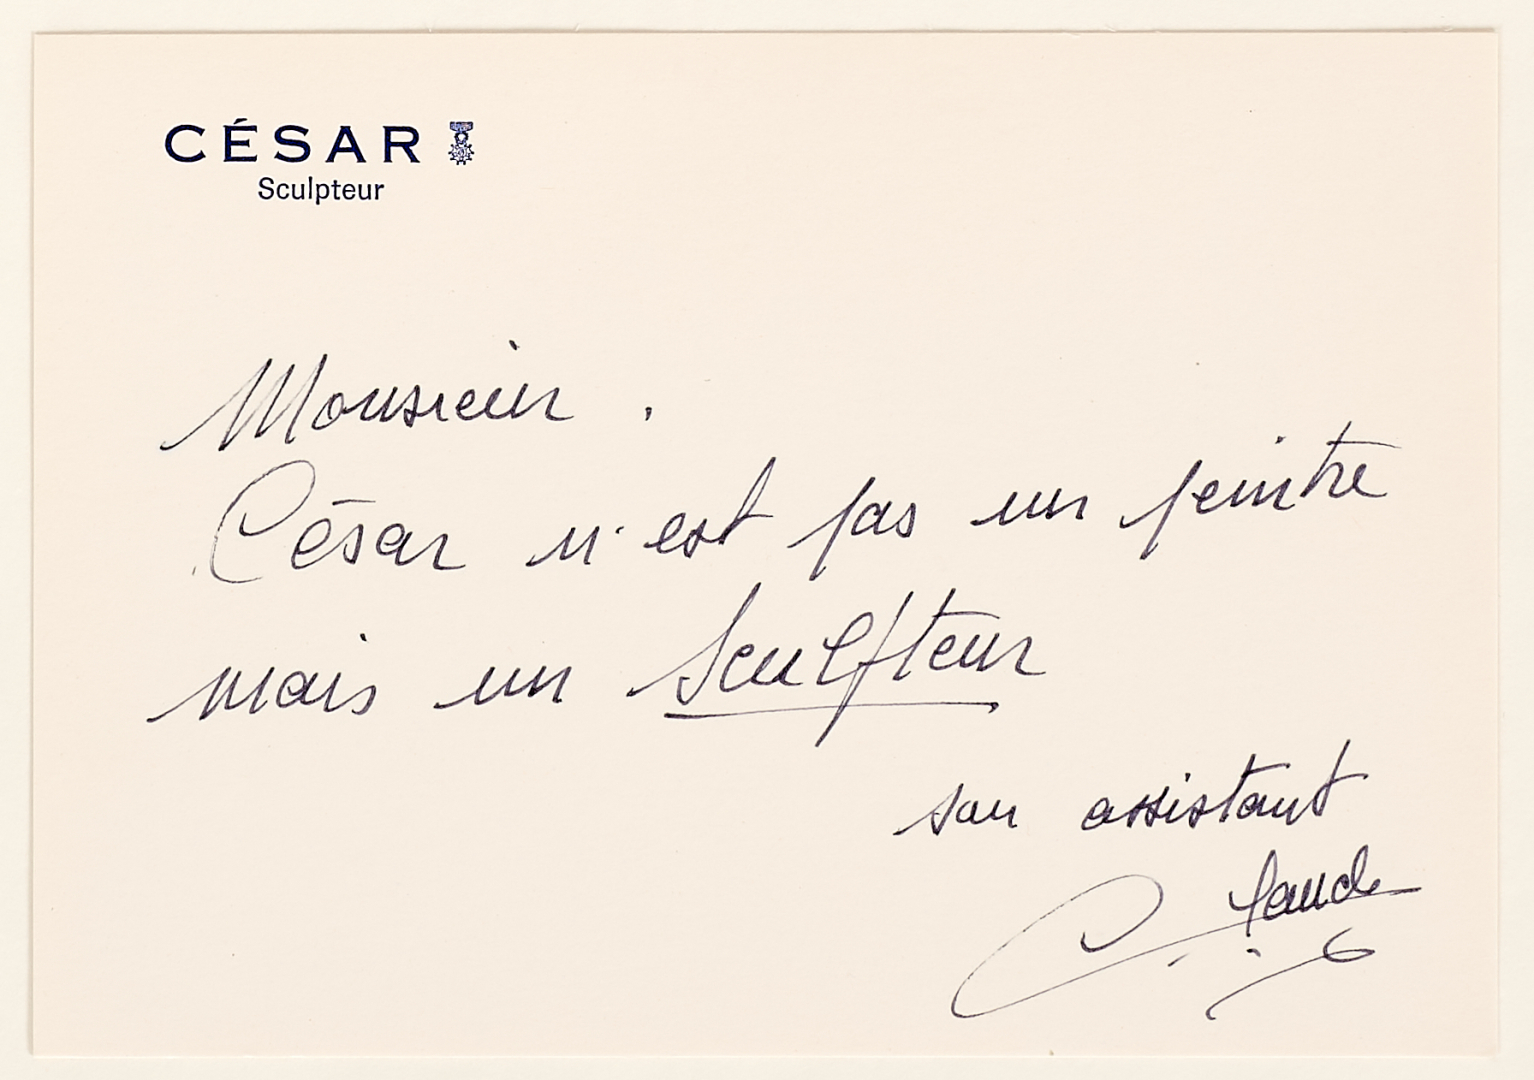 CÉSAR
Sculpteur
Monsieur.
César n'est pas un peintre
mais un Sculpteur
son assistant
Claude